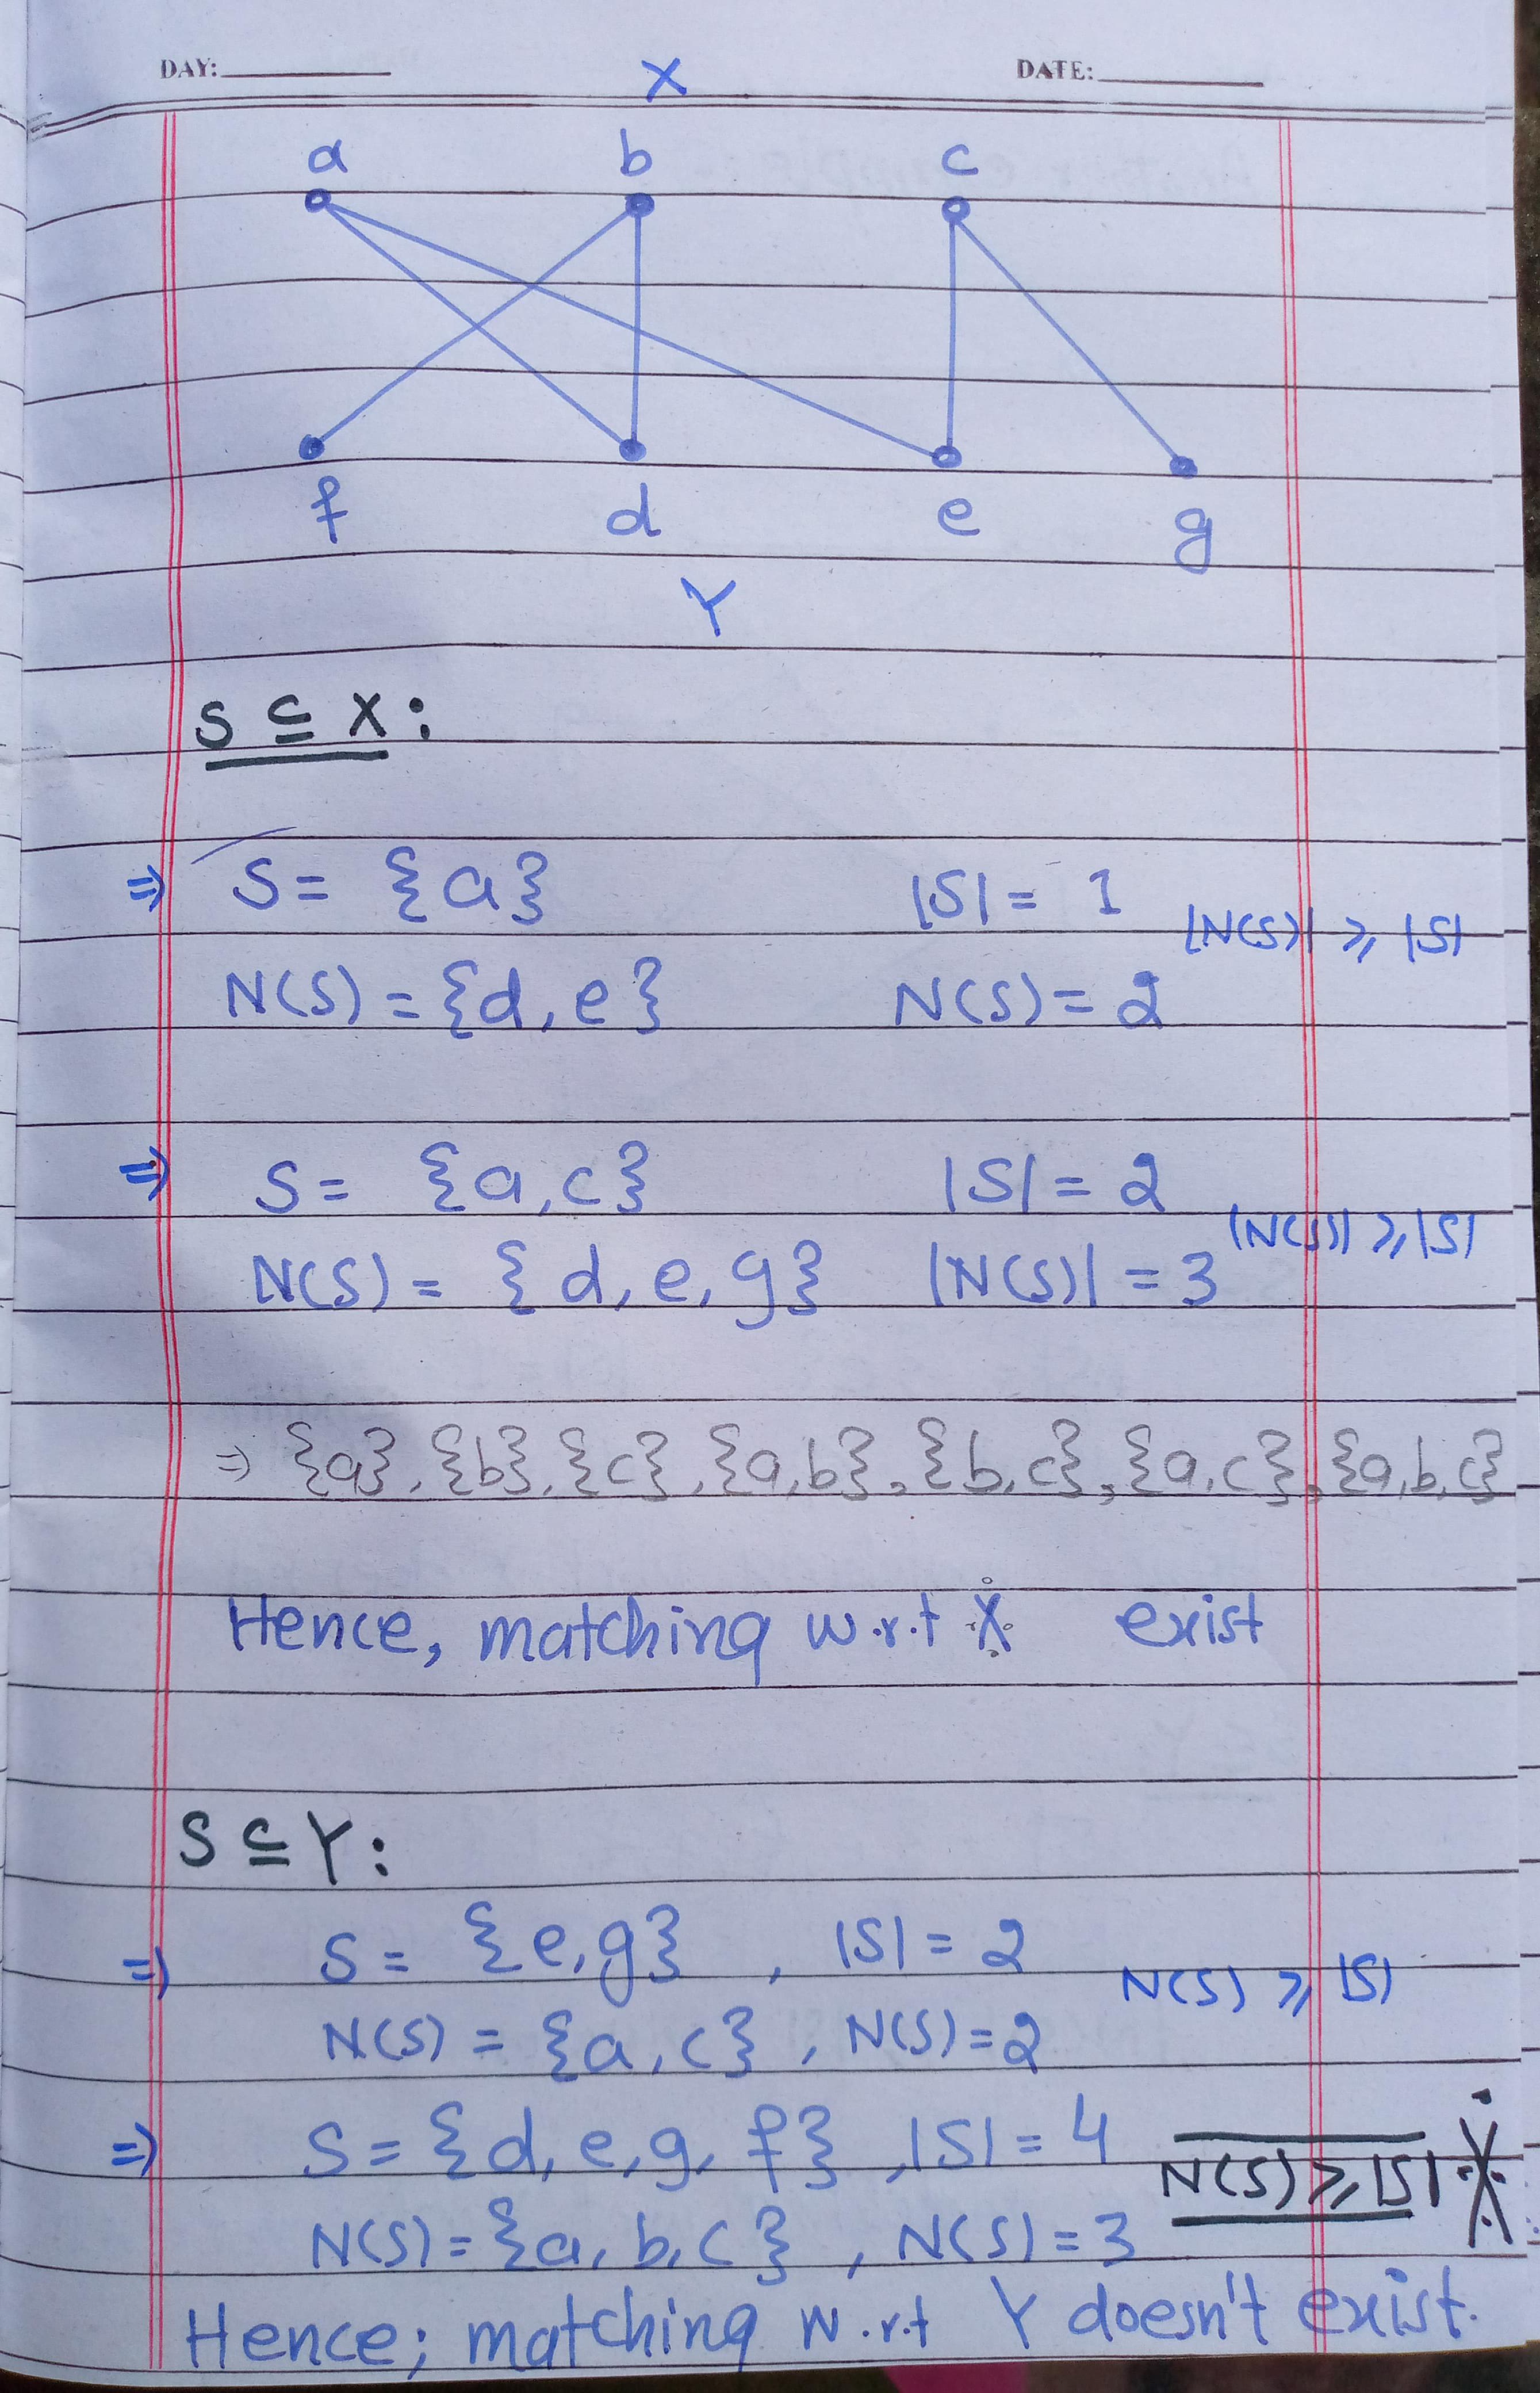 DAY: DATE:
X
a b c
f d e g
Y
S ⊆ X :
⇒ S = {a} |S| = 1
|N(S)| ⩾ |S|
N(S) = {d, e} N(S) = 2
⇒ S = {a, c} |S| = 2
|N(S)| ⩾ |S|
N(S) = {d, e, g} |N(S)| = 3
⇒ {a}, {b}, {c}, {a, b}, {b, c}, {a, c}, {a, b, c}
Hence, matching w.r.t X exist
S ⊆ Y :
⇒ S = {e, g} , |S| = 2
N(S) ⩾ |S|
N(S) = {a, c} , N(S) = 2
⇒ S = {d, e, g, f} , |S| = 4
N(S) ⩾ |S| X
N(S) = {a, b, c} , N(S) = 3
Hence; matching w.r.t Y doesn't exist.